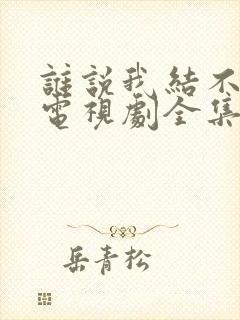 誰說我結不
電視劇全集
岳青松